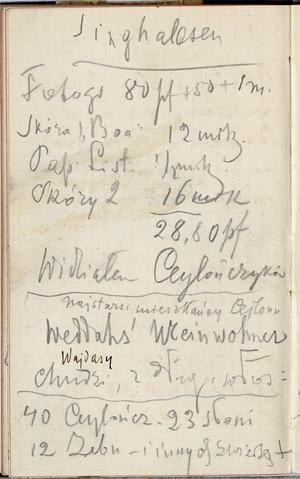 Singhalesen
Fotogr 80 pf + 50 + 1 m.
Skóra „Boa" 12 mrk.
Pap. List. ½ mrk.
Skóry 2 16 mrk
28,80 pf
Widziałem Ceylończyków
Najstarsi mieszkańcy Cejlonu
Weddahs' Ureinwohner
Wajdasy
chudzi, z dług. włos=
40 Ceylończ. 23 słoni
12 Zebu – i innych zwierząt